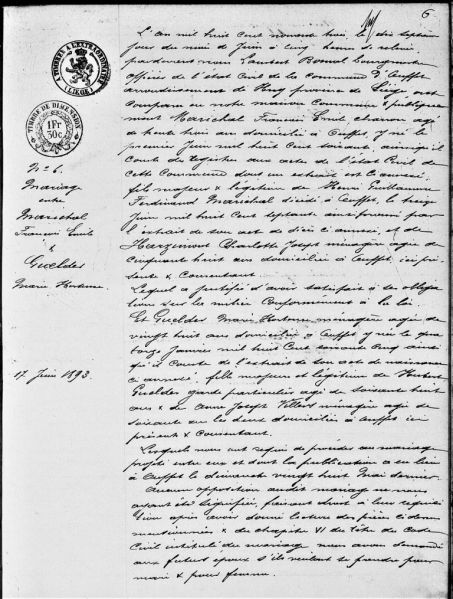 6
TIMBRE DE DIMENSION
1 Fr
30c
(LIEGE)
N° 6.
Mariage
entre
Maréchal
François Emile
&
Guelder
Marie Hortense
17 Juin 1893.
L'an mil huit cent nonante trois, le dix septième
jour du mois de Juin à cinq heures de relevée
pardevant nous Laurent Bourgmestre
officier de l'état civil de la commune d'Ouffet
arrondissement de Huy province de Liége, ont
comparu en notre maison Commune & publiquement
Maréchal François Emile charron âgé
de trente huit ans domicilié à Ouffet, y né le
premier Juin mil huit cent soixante, ainsi qu'il
conste du registre aux actes de l'état civil de
cette Commune dont un extrait est ci annexé,
fils majeur & légitime de Henri Guillaume
Ferdinand Maréchal décédé à Ouffet, le treize
Juin mil huit cent septante ainsi prouvé par
l'extrait de son acte de décès ci annexé, et de
Charlotte Joseph ménagère âgée de
cinquante huit ans domiciliée à Ouffet, ici présente
& Consentant.
Lequel a justifié d'avoir satisfait à ses obligations
sur la milice Conformément à la loi.
Et Guelder Marie Hortense ménagère âgée de
vingt huit ans domiciliée à Ouffet y née le quatorze
Janvier mil huit Cent soixante cinq ainsi
qu'il conste de l'extrait de son acte de naissance
ci annexé, fille majeure et légitime de
Guelder garde particulier âgé de soixante huit
ans & de Anne Joseph ménagère âgée de
soixante ans les deux domiciliés à Ouffet ici
présents & Consentant.
Lesquels nous ont requis de procéder au mariage
projeté entre eux et dont la publication a eu lieu
à Ouffet le dimanche vingt huit Mai dernier.
Aucune opposition audit mariage ne nous
ayant été signifiée, faisant droit à leur réquisition
après avoir donné lecture des pièces ci dessus
mentionnées & du chapitre VI du titre du Code
Civil intitulé du mariage nous avons demandé
aux futurs époux s'ils veulent se prendre pour
mari & pour femme.